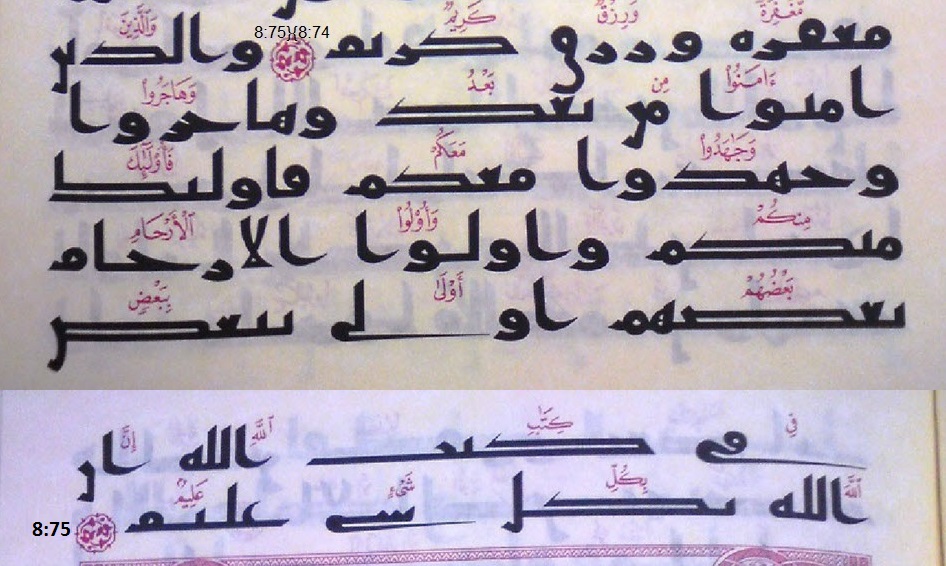 مَّغْفِرَةٌ وَرِزْقٌ كَرِيمٌ وَالَّذِينَ
8:75}{8:74
مغفره ورزق كريم والذين
ءَامَنُوا۟ مِن بَعْدُ وَهَاجَرُوا۟
امنوا من بعد وهاجروا
وَجَٰهَدُوا۟ مَعَكُمْ فَأُو۟لَٰٓئِكَ
وجهدوا معكم فاوليك
مِنكُمْ وَأُو۟لُوا۟ ٱلْأَرْحَامِ
منكم واولوا الارحام
بَعْضُهُمْ أَوْلَىٰ بِبَعْضٍ
بعضهم اولى ببعض
فِي كِتَٰبِ ٱللَّهِ إِنَّ
في كتب الله ان
ٱللَّهَ بِكُلِّ شَىْءٍ عَلِيمٌ
الله بكل شي عليم
8:75